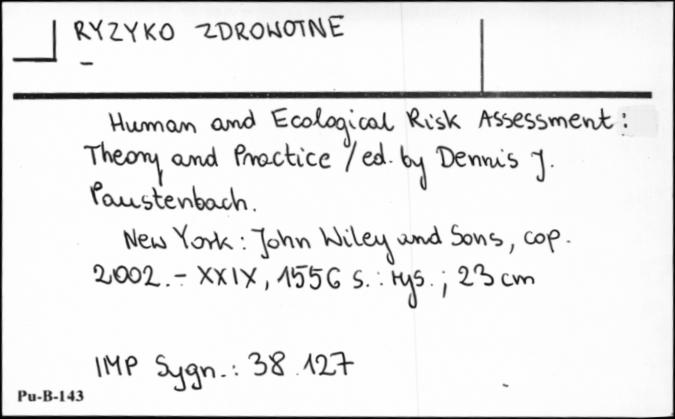 RYZYKO ZDROWOTNE
-
Human and Ecological Risk Assessment:
Theory and Practice / ed. by Dennis J.
Paustenbach.
New York: John Wiley and Sons, cop.
2002.- XXIX, 1556 s. : rys. ; 23 cm
IMP Sygn.: 38.127
Pu-B-143